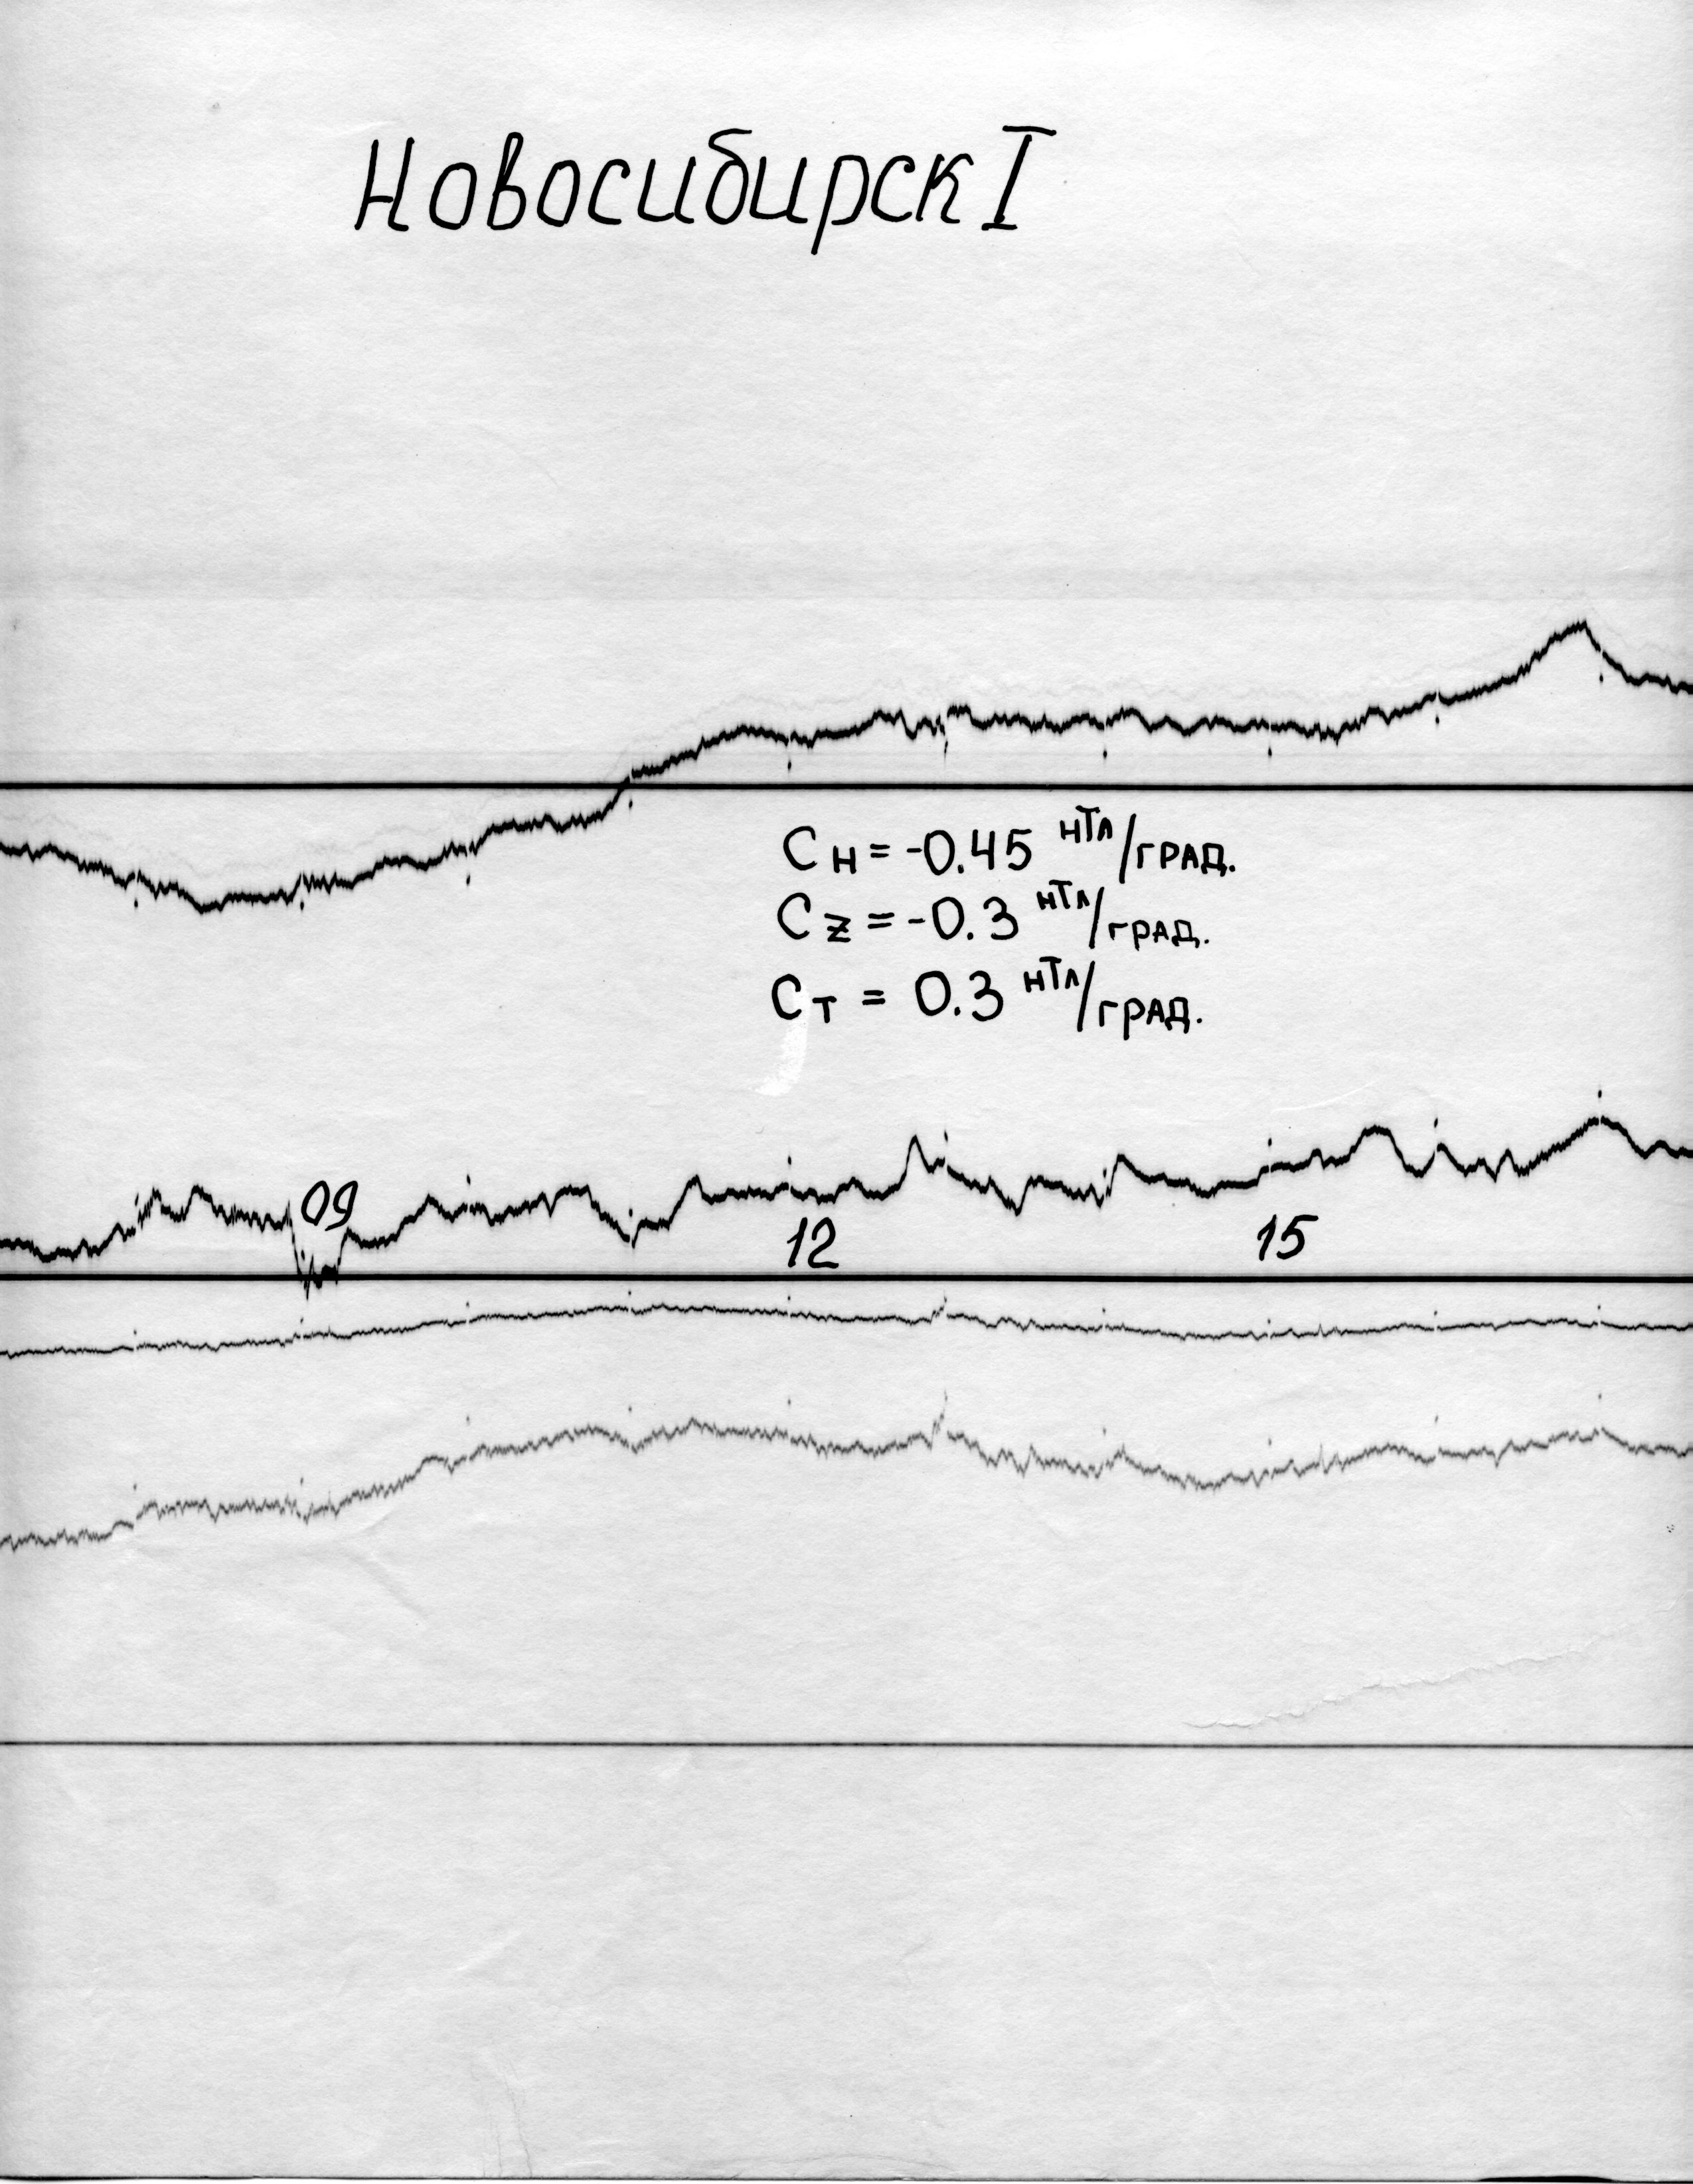 Новосибирск I
C H = -0.45 нТл/град.
C Z = -0.3 нТл/град.
C T = 0.3 нТл/град.
09
12
15